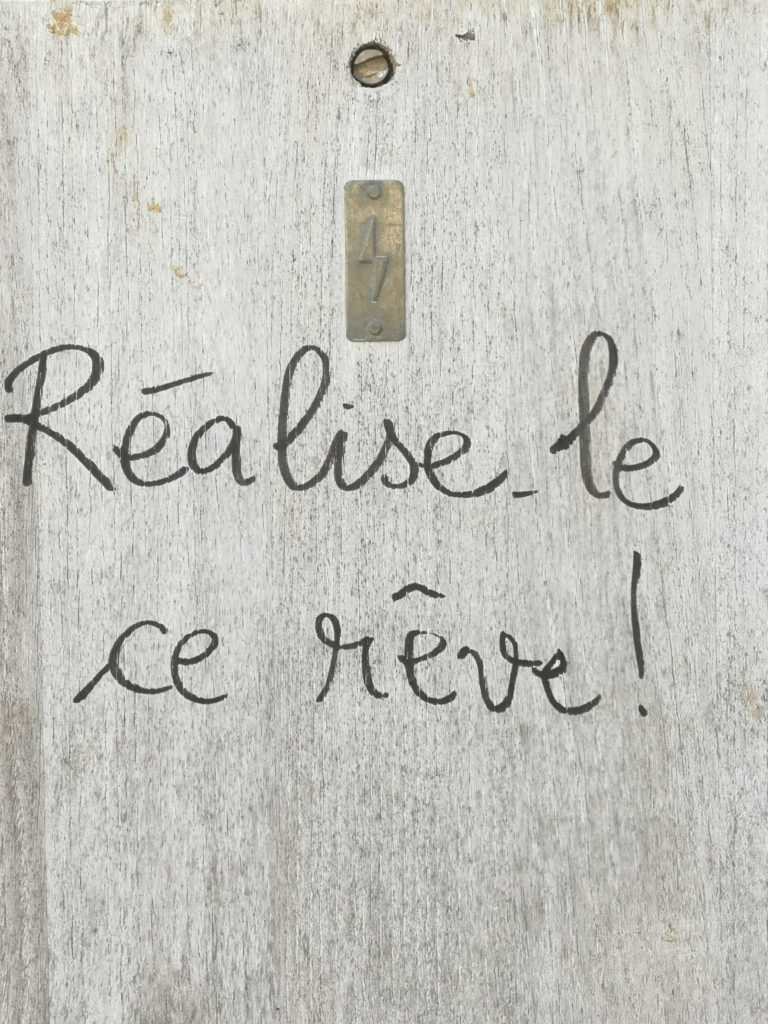 Réalise-le
ce rêve!